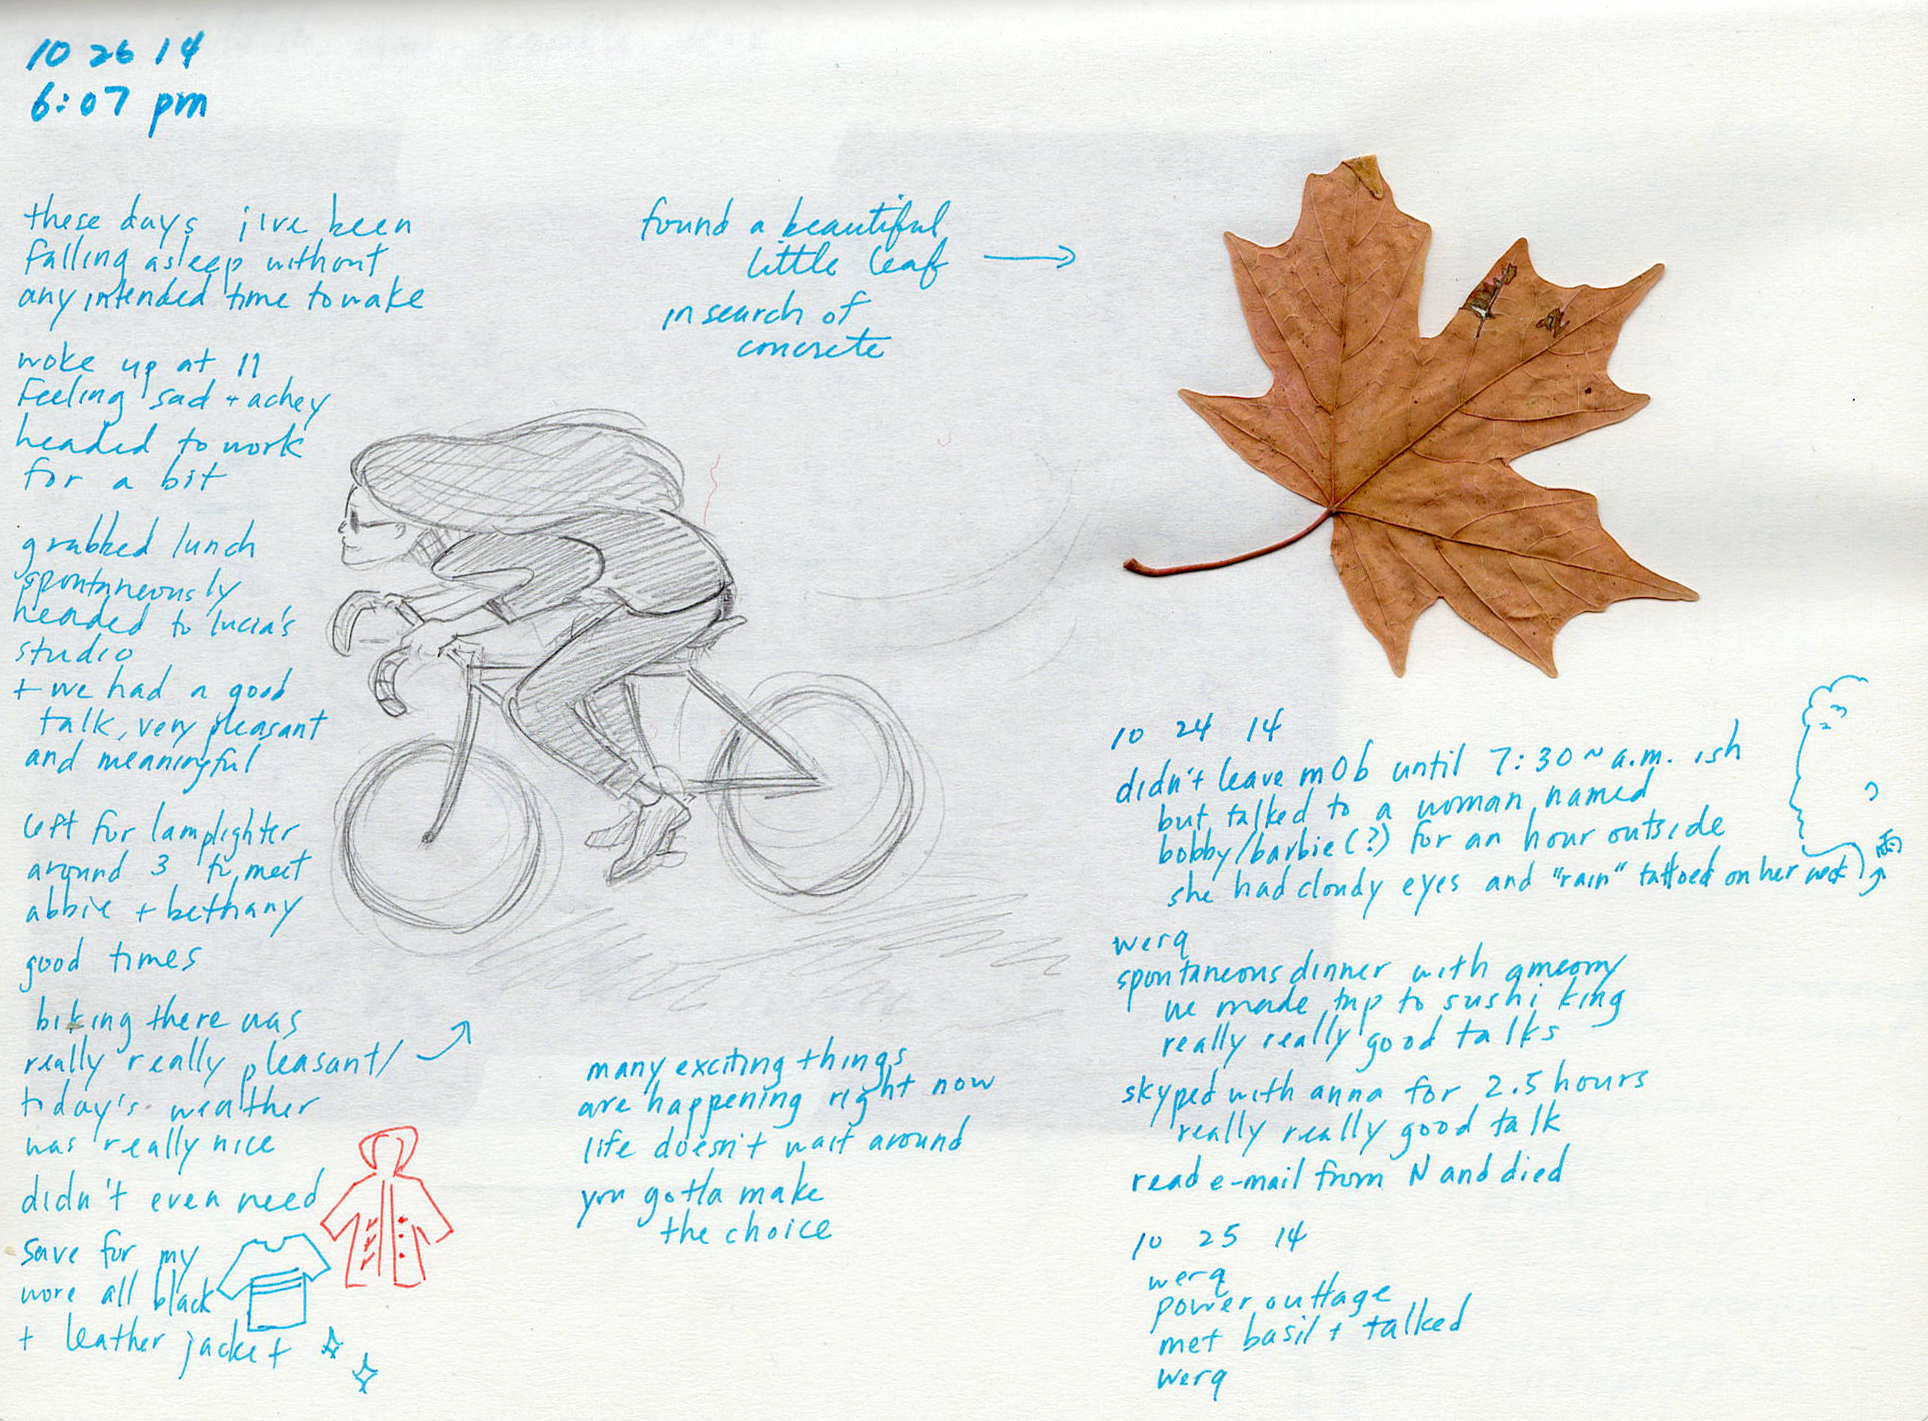 10 26 14
6:07 pm
these days i've been
falling asleep without
any intended time to wake
woke up at 11
feeling sad + achey
headed to work
for a bit
grabbed lunch
spontaneously
headed to lucia's
studio
+ we had a good
talk, very pleasant
and meaningful
left for lamplighter
around 3 to meet
abbie + bethany
good times
biking there was
really really pleasant/
today's weather
was really nice
didn't even need
save for my
wore all black
+ leather jacket
found a beautiful
little leaf
in search of
concrete
many exciting things
are happening right now
life doesn't wait around
you gotta make
the choice
10 24 14
didn't leave mOb until 7:30~a.m. ish
but talked to a woman named
bobby/barbie(?) for an hour outside
she had cloudy eyes and "rain" tattoed on her neck
雨
werq
spontaneous dinner with
we made trip to sushi king
really really good talks
skyped with anna for 2.5 hours
really really good talk
read e-mail from N and died
10 25 14
werq
power outtage
met basil + talked
werq